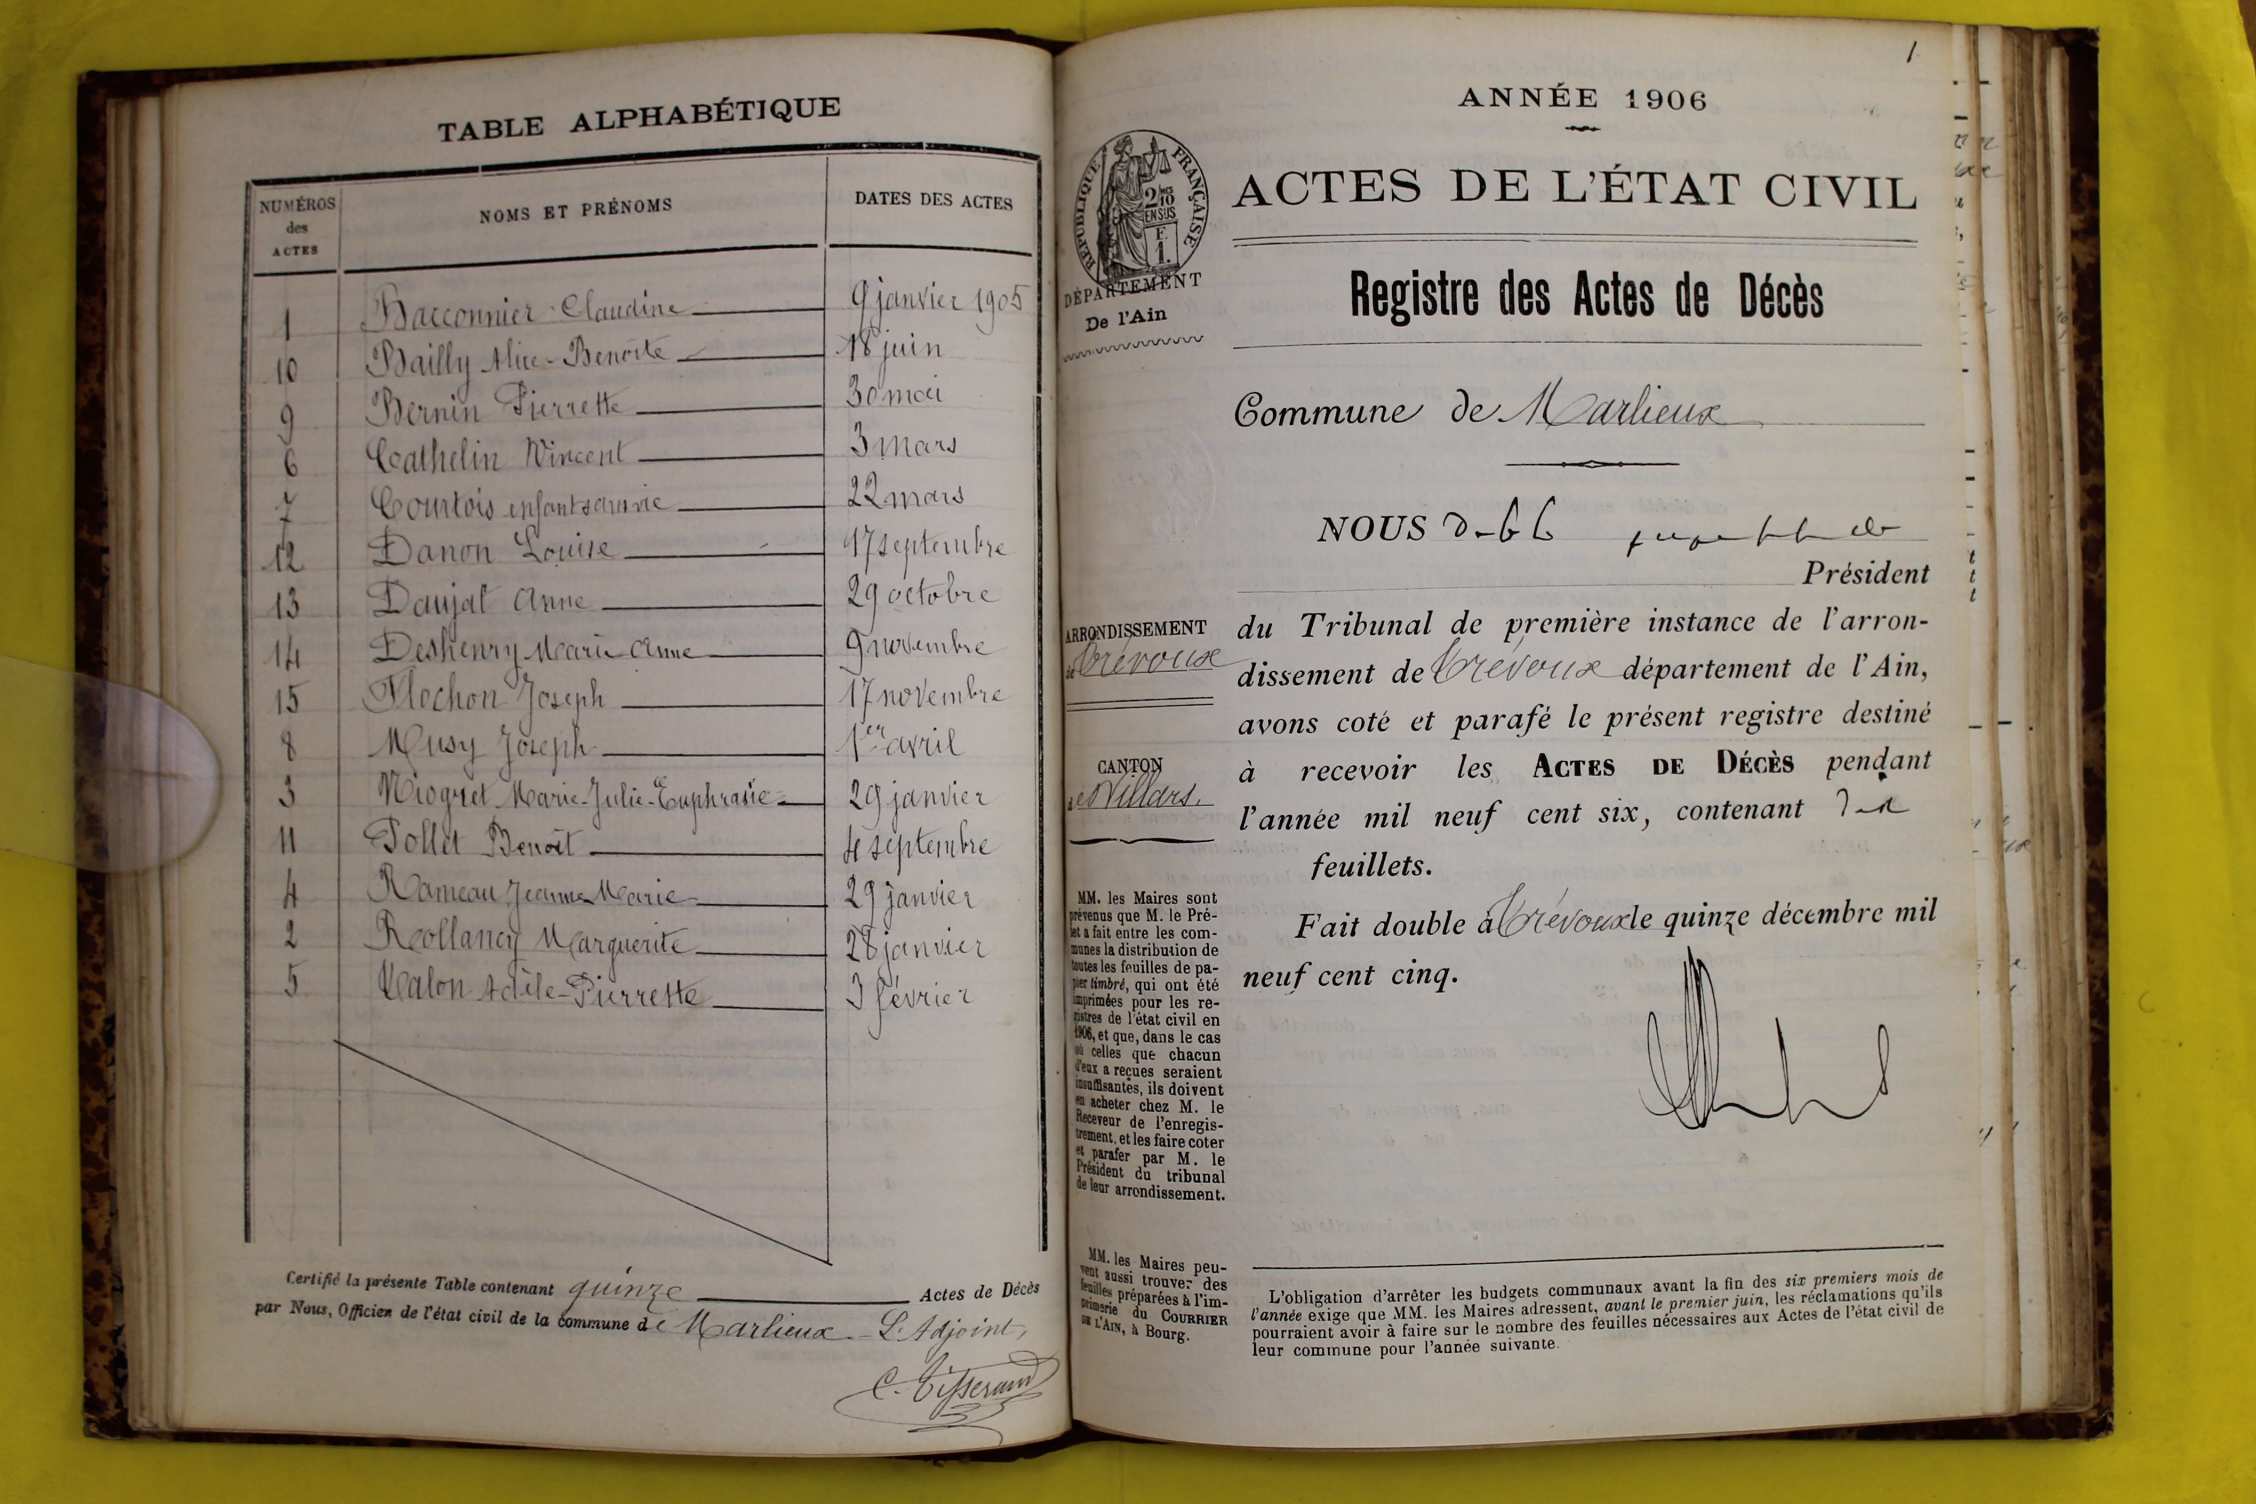 TABLE ALPHABÉTIQUE
NUMÉROS des ACTES NOMS ET PRÉNOMS DATES DES ACTES
1 Bacconnier Claudine 9 janvier 1905
10 Bailly Alice-Benoîte 18 juin
9 Bernin Pierrette 30 mai
6 Cathelin Vincent 3 mars
7 Courtois enfant sans vie 22 mars
12 Danon Louise 17 septembre
13 Daujat Anne 29 octobre
14 Deshenry Marie Anne 9 novembre
15 Flochon Joseph 17 novembre
8 Musy Joseph 1er avril
3 Niogret Marie-Julie-Euphrasie 29 janvier
11 Pollet Benoît 4 septembre
4 Rameau Jeanne Marie 29 janvier
2 Rollancy Marguerite 28 janvier
5 Valon Adèle-Pierrette 3 février
Certifié la présente Table contenant quinze Actes de Décès
par Nous, Officier de l'état civil de la commune de Marlieux L'Adjoint,
C. Tisserand
1
ANNÉE 1906
RÉPUBLIQUE FRANÇAISE
2/10 EN SUS
F.
1.
DÉPARTEMENT
De l'Ain
ACTES DE L'ÉTAT CIVIL
Registre des Actes de Décès
Commune de Marlieux
NOUS
Président
du Tribunal de première instance de l'arron-
dissement de Trévoux département de l'Ain,
avons coté et parafé le présent registre destiné
à recevoir les ACTES DE DÉCÈS pendant
l'année mil neuf cent six, contenant
feuillets.
Fait double à Trévoux le quinze décembre mil
neuf cent cinq.
ARRONDISSEMENT
de Trévoux
CANTON
de Villars.
MM. les Maires sont
prévenus que M. le Pré-
fet a fait entre les com-
munes la distribution de
toutes les feuilles de pa-
pier timbré, qui ont été
imprimées pour les re-
gistres de l'état civil en
1906, et que, dans le cas
où celles que chacun
d'eux a reçues seraient
insuffisantes, ils doivent
en acheter chez M. le
Receveur de l'enregis-
trement, et les faire coter
et parafer par M. le
Président du tribunal
de leur arrondissement.
MM. les Maires peu-
vent aussi trouver des
feuilles préparées à l'im-
primerie du COURRIER
DE L'AIN, à Bourg.
L'obligation d'arrêter les budgets communaux avant la fin des six premiers mois de
l'année exige que MM. les Maires adressent, avant le premier juin, les réclamations qu'ils
pourraient avoir à faire sur le nombre des feuilles nécessaires aux Actes de l'état civil de
leur commune pour l'année suivante.